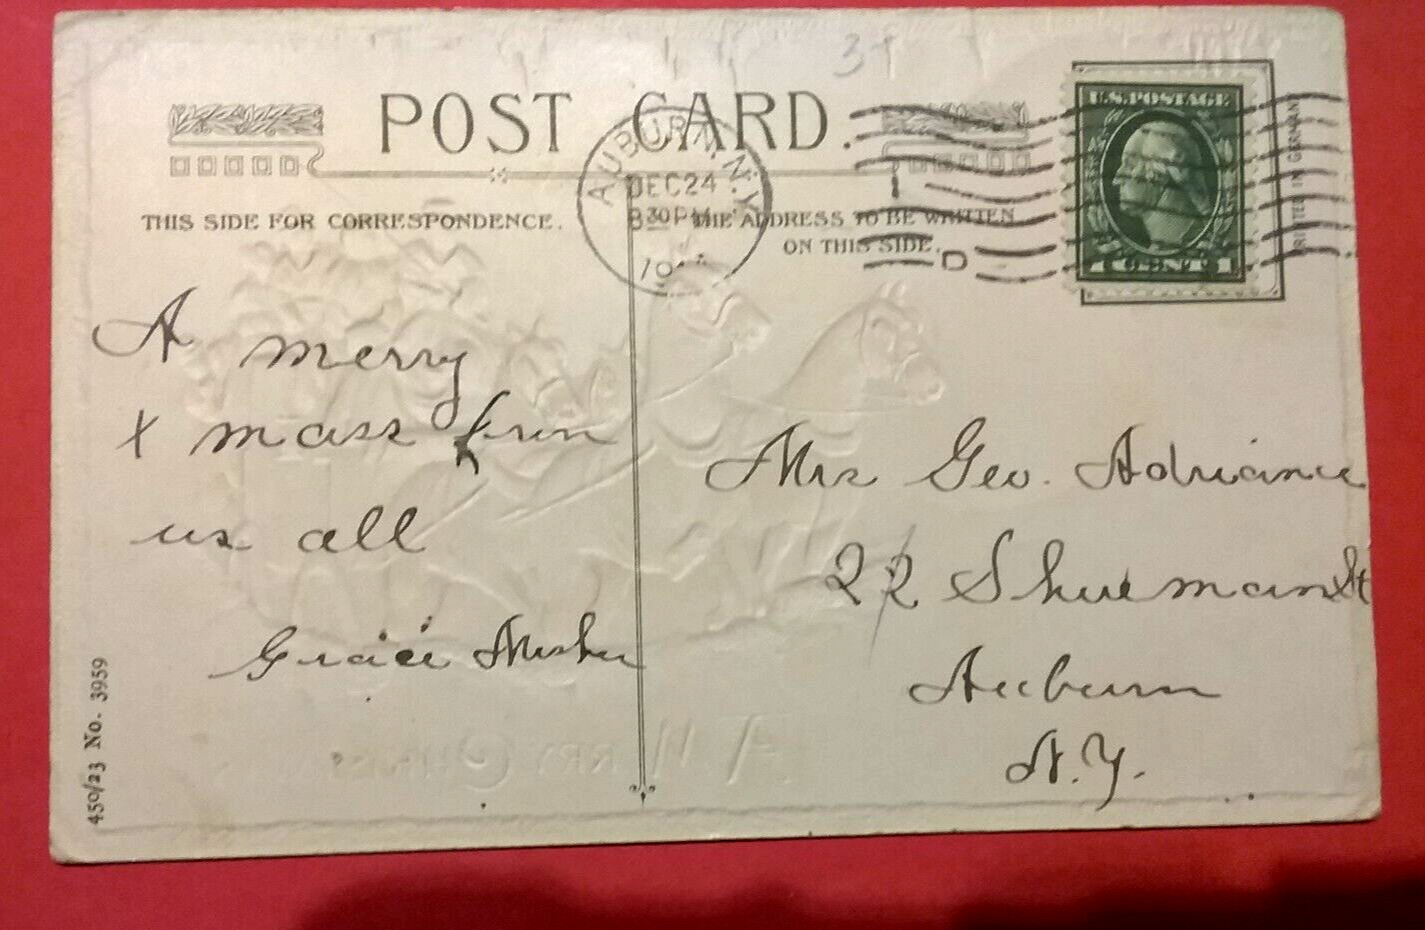 POST CARD.
THIS SIDE FOR CORRESPONDENCE.
THE ADDRESS TO BE WRITTEN
ON THIS SIDE.
AUBURN, N.Y.
DEC 24
8 30 PM
D
U.S. POSTAGE
1 CENT 1
PRINTED IN GERMANY
34
A merry
x mass from
us all
Gracie
Mrs Geo. Adriance
22 Shueman St
Auburn
N.Y.
450/23 No. 3959
A MERRY